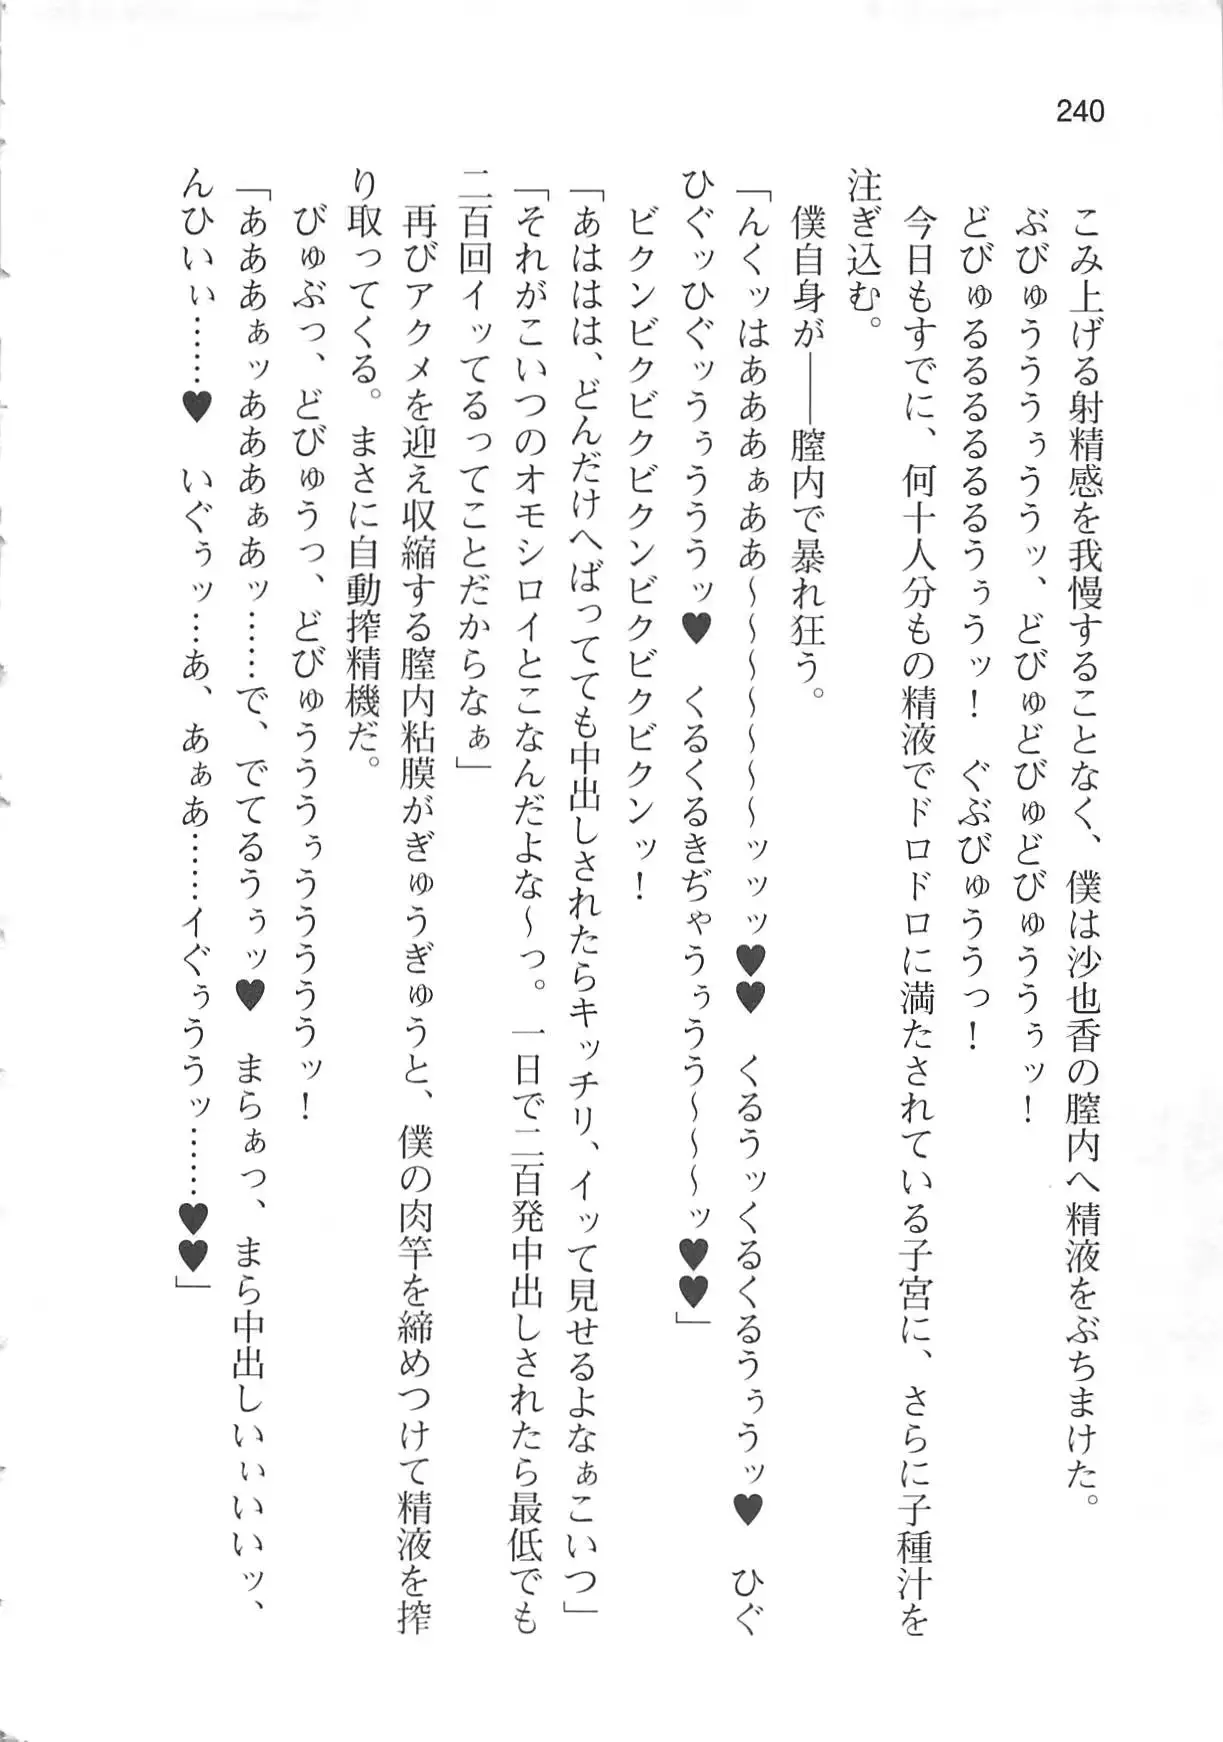 240
こみ上げる射精感を我慢することなく、僕は沙也香の膣内へ精液をぶちまけた。
ぶびゅうううぅううッ、どびゅどびゅどびゅううぅッ！
どびゅるるるるるうぅうッ！　ぐぶびゅううっ！
今日もすでに、何十人分もの精液でドロドロに満たされている子宮に、さらに子種汁を
注ぎ込む。
僕自身が――膣内で暴れ狂う。
「んくッはあああぁああ～～～～～～～ッッッ♥♥　くるうッくるくるうぅうッ♥　ひぐ
ひぐッひぐッうぅうううッ♥　くるくるきぢゃうぅうう～～～～ッ♥♥」
ビクンビクビクビクンビクビクビクンッ！
「あははは、どんだけへばってても中出しされたらキッチリ、イッて見せるよなぁこいつ」
「それがこいつのオモシロイとこなんだよな～っ。一日で二百発中出しされたら最低でも
二百回イッてるってことだからなぁ」
再びアクメを迎え収縮する膣内粘膜がぎゅうぎゅうと、僕の肉竿を締めつけて精液を搾
り取ってくる。まさに自動搾精機だ。
びゅぶっ、どびゅうっ、どびゅうううぅうううううッ！
「あああぁッあああぁあッ……で、でてるうぅッ♥　まらぁっ、まら中出しいぃいいッ、
んひいぃ……♥　いぐぅッ…あ、あぁあ……イぐぅううッ……♥♥」